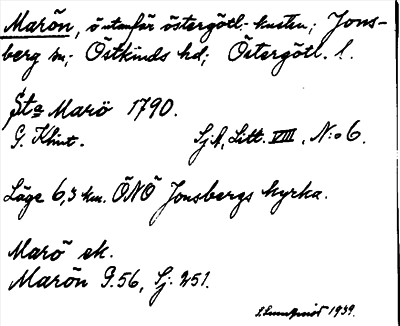 Marön, ö utanför östergötl.-kusten; Jons-
berg sn; Östkinds hd; Östergötl. l.
Sta Marö 1790.
G. Klint.
Sjk, Litt. VIII, N:o 6.
Läge 6,3 km. ÖNÖ Jonsbergs kyrka.
Marö ek.
Marön G.56, Sj. 251.
1939.